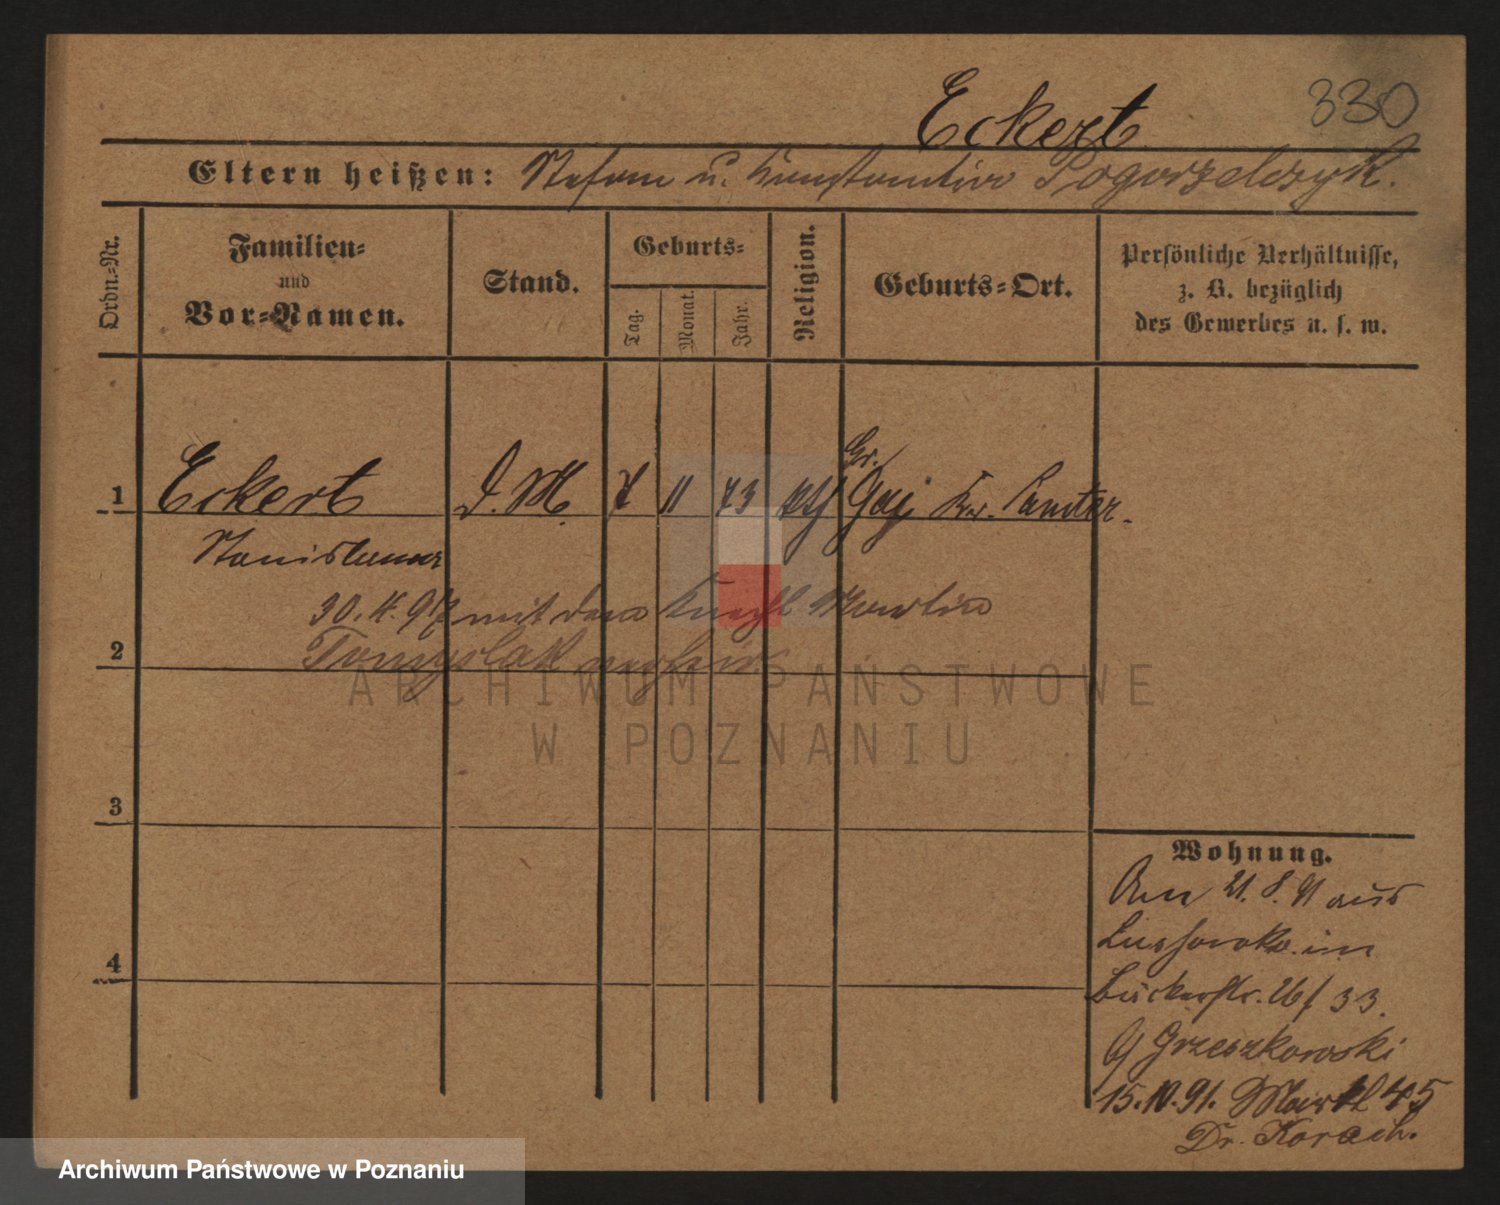 330
Eckert
Eltern heißen: Stefan u. Konstantia Pogorzelczyk.
Ordn.=Nr.
Familien=
und
Vor=Namen.
Stand.
Geburts=
Tag.
Monat.
Jahr.
Religion.
Geburts=Ort.
Persönliche Verhältnisse,
z. B. bezüglich
des Gewerbes u. s. w.
1 Eckert D. M. 7 11 73 kth Gr. Gaj Kr. Samter.
Stanislawa
30. 4. 97 mit dem Knecht Martin
Tomyslak verheir.
2
3
4
Wohnung.
Am 21. 8. 91 aus
Lussowko in
Bäckerstr. 26/ 33.
Grzeszkowski
15. 10. 91. Markt 45
Dr. Korach.
ARCHIWUM PAŃSTWOWE
W POZNANIU
Archiwum Państwowe w Poznaniu